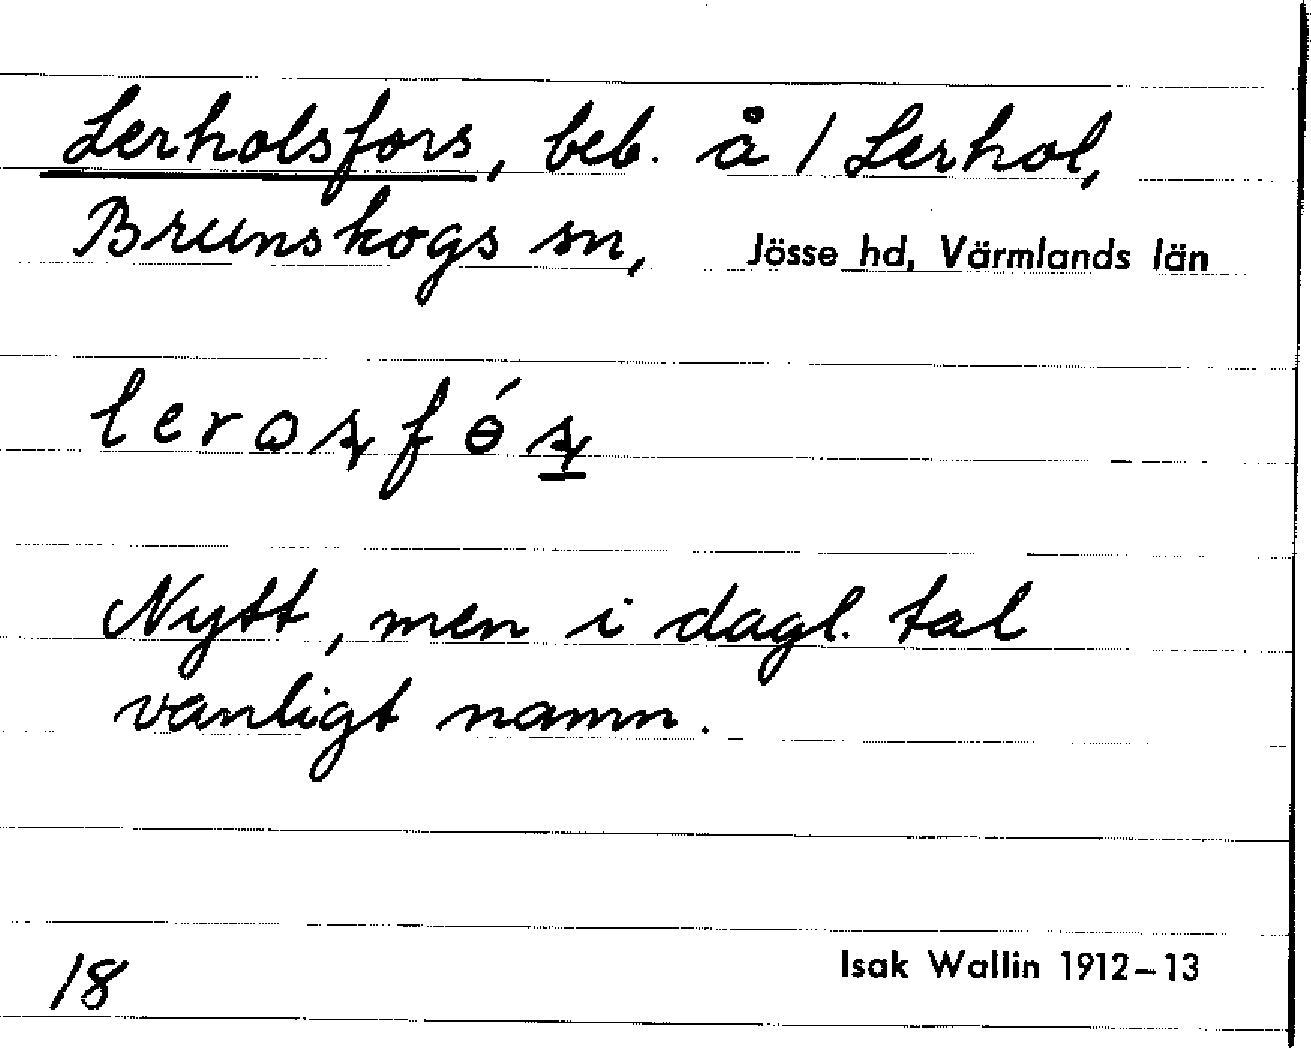 Lerholsfors, beb. å 1 Lerhol,
Brunskogs sn, Jösse hd, Värmlands län
Nytt, men i dagl. tal
vanligt namn.
18
Isak Wallin 1912–13